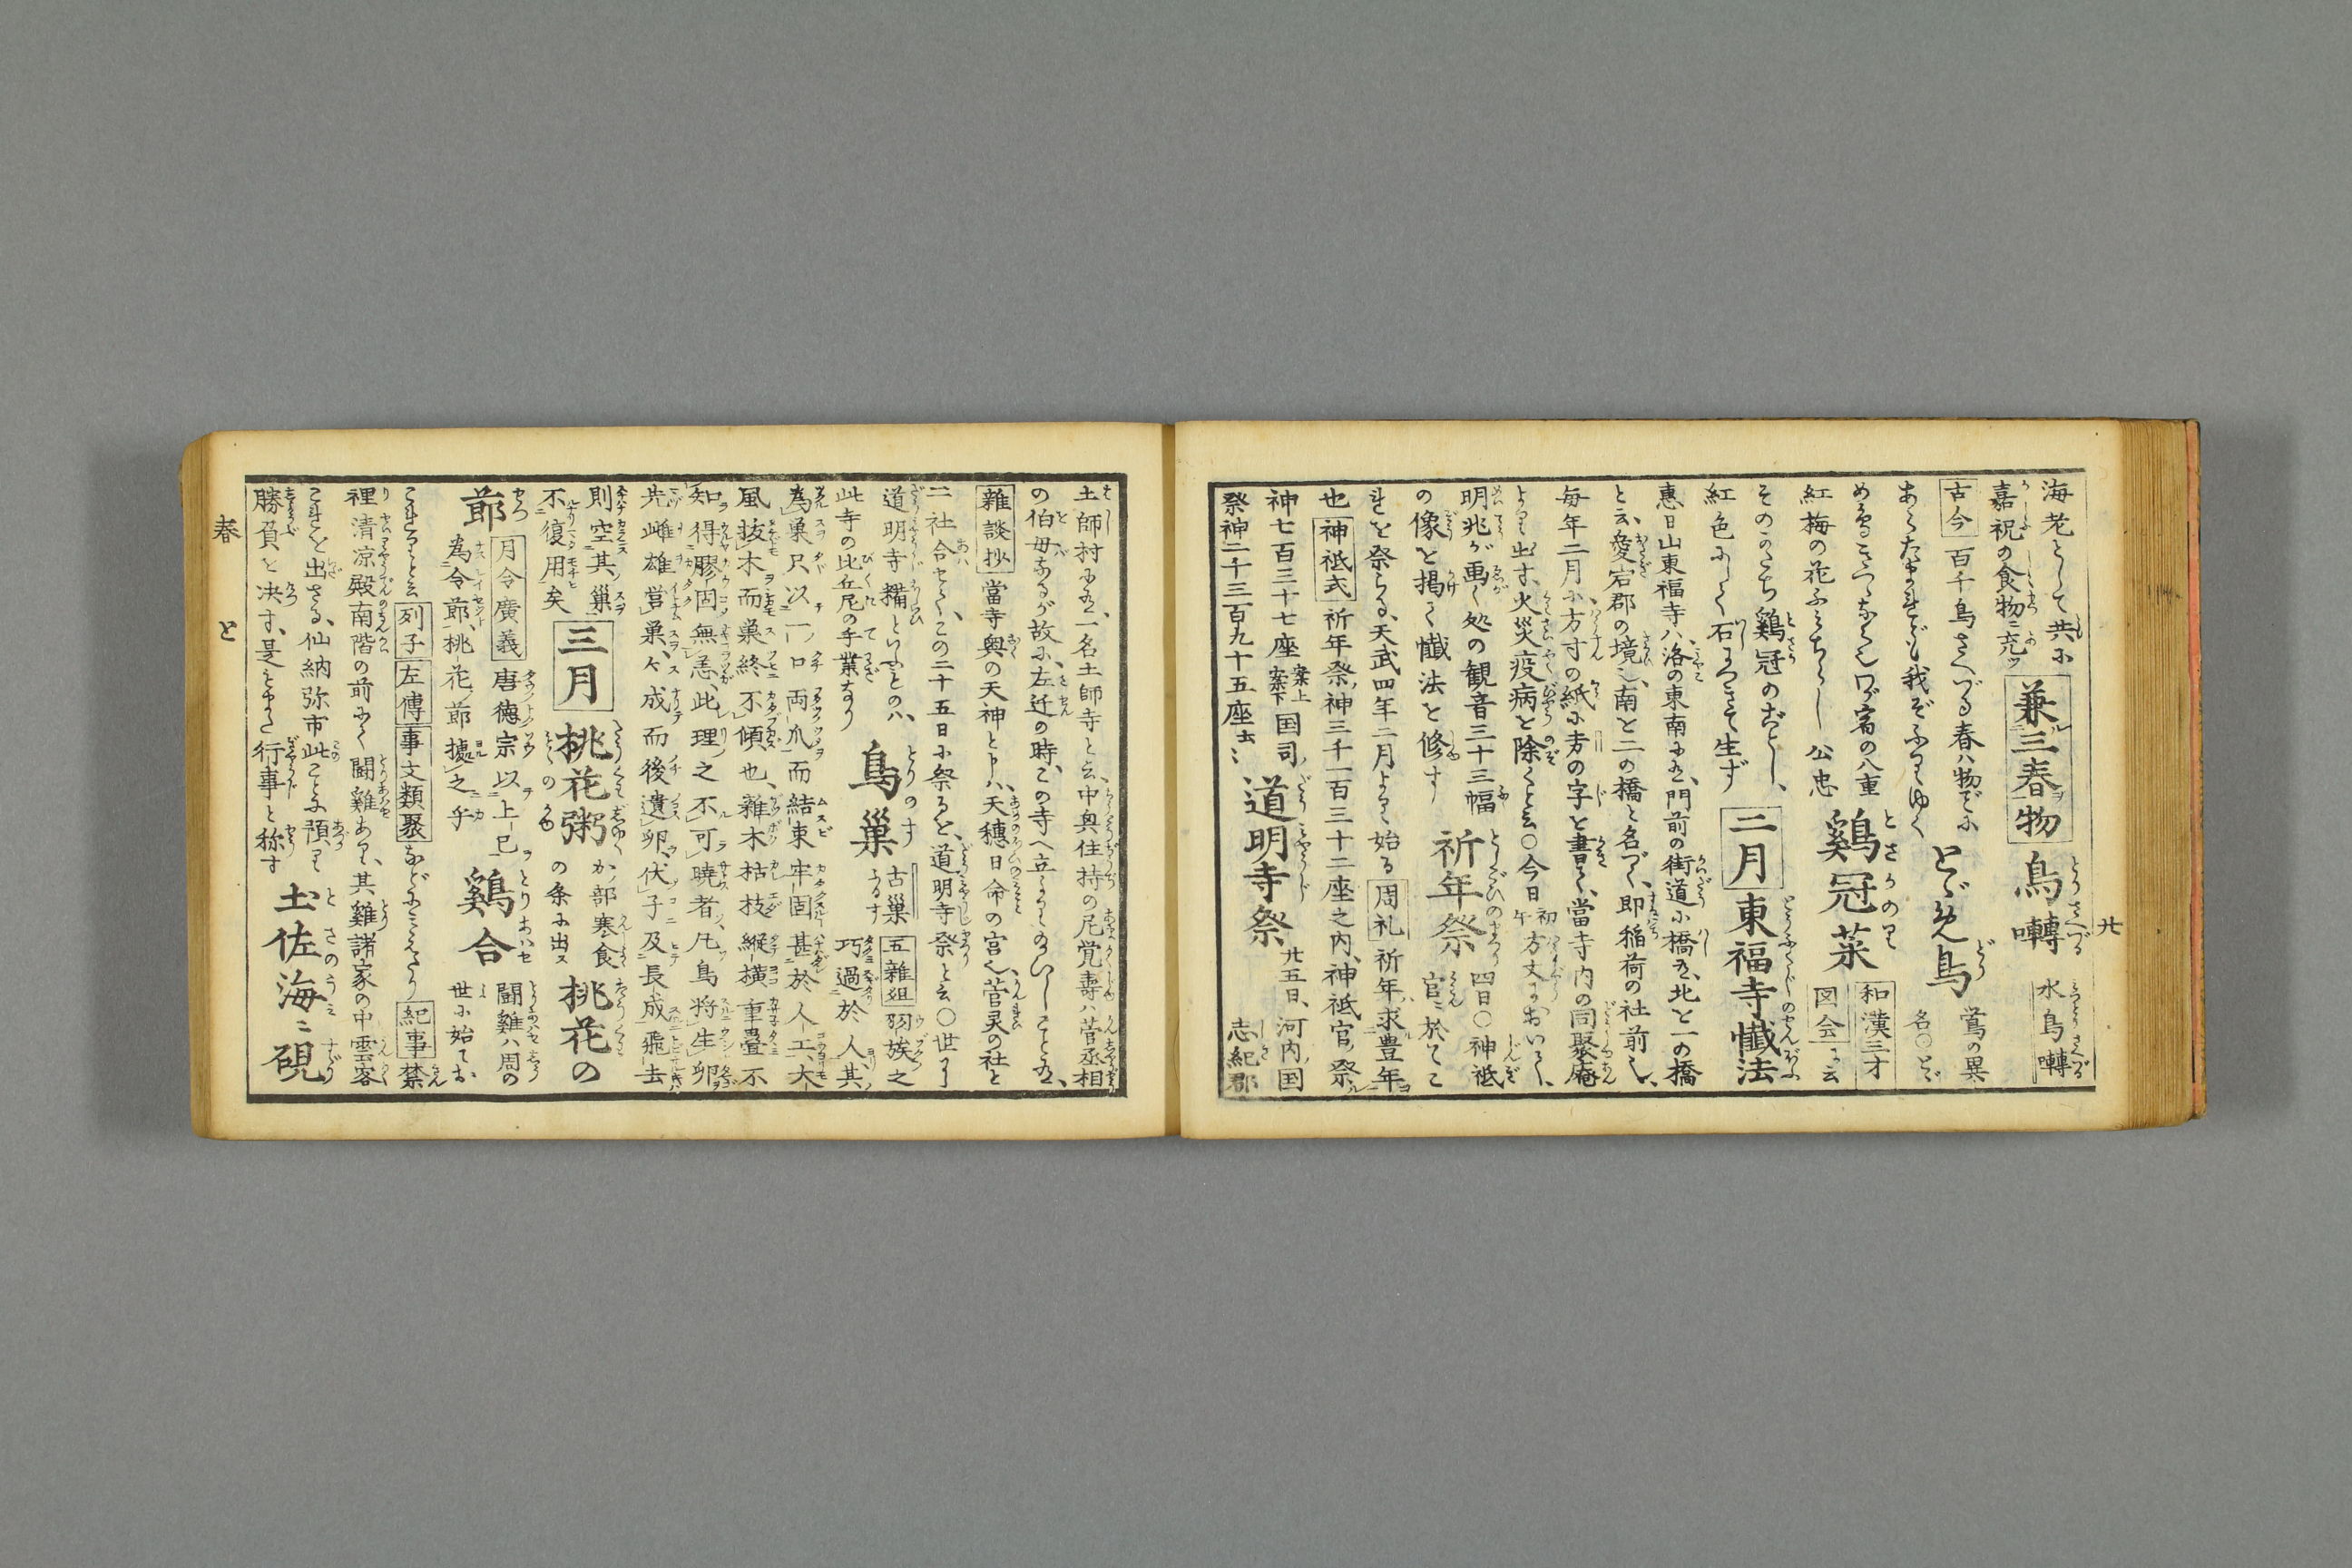 廿
海老として共に
嘉祝の食物ニ充ツ 兼三春物 鳥囀 水鳥囀
古今 百千鳥さへづる春ハ物ごとに
あらたまれども我ぞふりゆく とゞめ鳥 鶯の異名○とゞ
紅梅の花ふみちらし 公忠 鶏冠菜 和漢三才図会に云
そのかたち鶏冠のごとし、
紅色にして石につきて生ず 二月 東福寺懺法
惠日山東福寺ハ洛の東南に在、門前の街道に橋在、北を一の橋
と云、愛宕郡の境也、南を二の橋と名づく、即稲荷の社前也、
毎年二月に方寸の紙に方の字を書く、當寺内の同聚庵
より出す、火災疫病を除くと云○今日 初午 方丈において、
明兆が画く処の観音三十三幅
の像を掲て懺法を修す 祈年祭 四日○神祇官ニ於てこ
れを祭らる、天武四年二月より始る 周礼 祈年求豊年
也 神祇式 祈年祭神三千一百三十二座之内、神祇官祭
神七百三十七座 案上案下 国司
祭神二千三百九十五座云〻 道明寺祭 廿五日、河内国志紀郡
土師村に在、一名土師寺と云、中興住持の尼覚寿ハ菅丞相
の伯母なるが故に左迁の時、この寺へ立よらせ給ひしこと在、
雜談抄 當寺奥の天神と申ハ天穗日命の宮也、菅灵の社と
二社合せて、この二十五日に祭るを、道明寺祭と云○世に
道明寺糒といふものハ、
此寺の比丘尼の手業なり 鳥巢 古巢 五雜俎 羽族之巧過於人、其
為巢只以一口両爪而結束牢固甚於人工、大
風抜木而巢終不傾也、雜木枯枝縱横重疊不
知得膠固無恙、此理之不可曉者、凡鳥将生卵
先雌雄営巢、巢成而後遺卵、伏子及長成飛去
則空其巢
不復用矣 三月 桃花粥 かノ部寒食の条に出ス 桃花の
節 月令廣義 唐德宗以上巳為令節、桃花節據之乎 鶏合 闘雞ハ周の世に始て
これありと云 列子 左傳 事文類聚 などにみえたり 紀事 禁
裡清凉殿南階の前にて闘雞あり、其雞諸家の中雲客
これを出さる、仙納弥市此ことに預り
勝負を决す、是をまた行事と称す 土佐海ニ硯
春 と